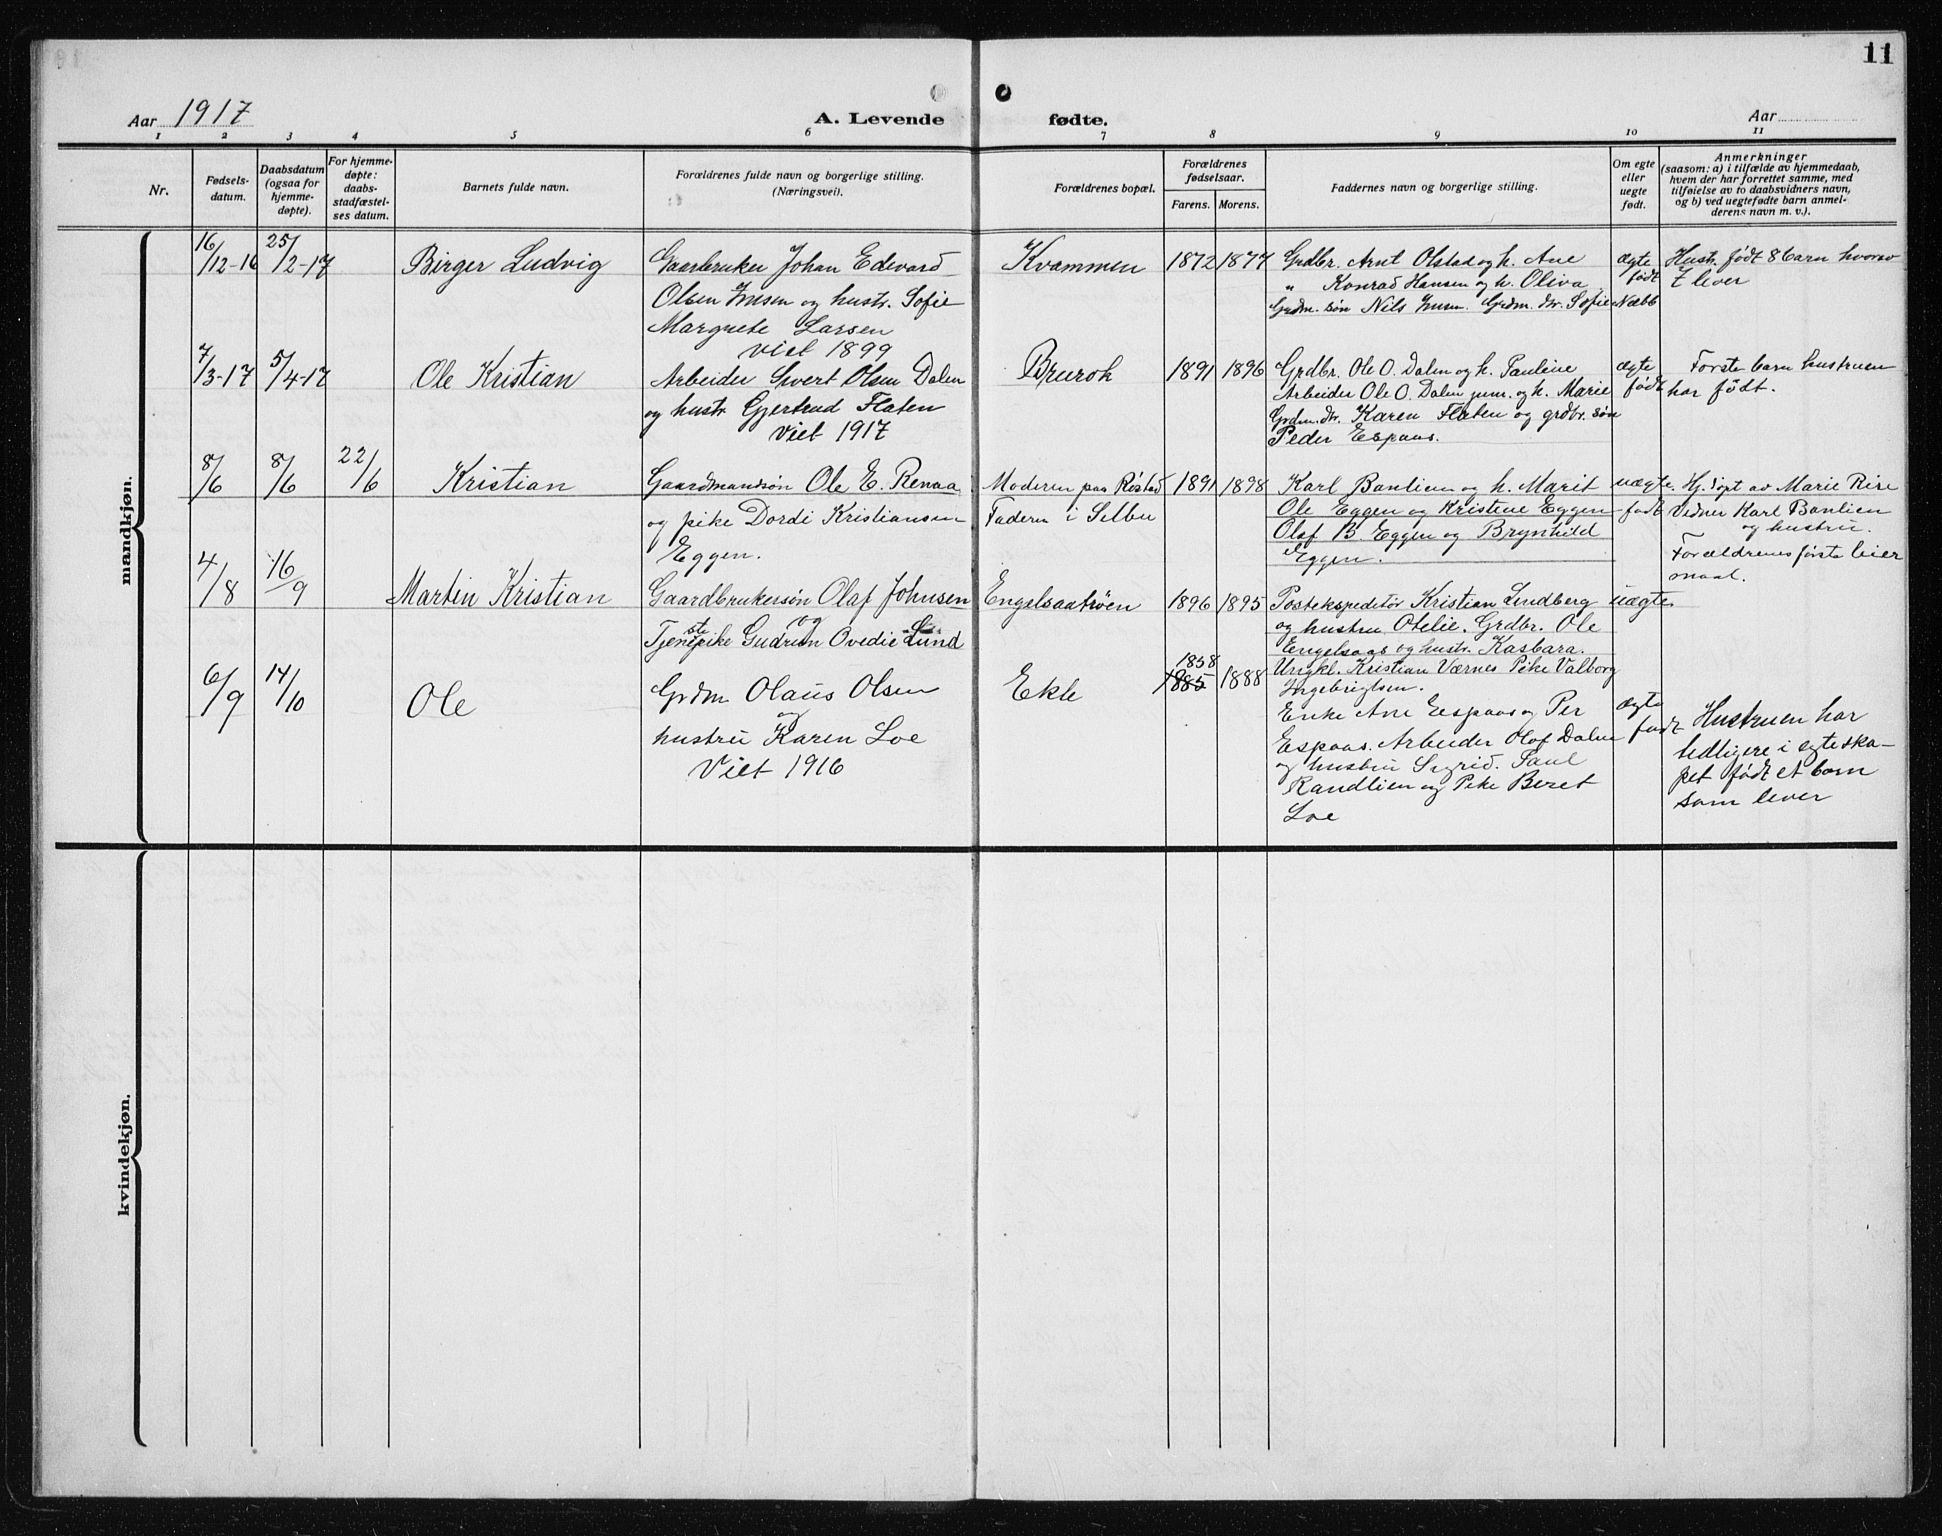 11
Aar 1917
A. Levende fødte.
Aar
1 2 3 4 5 6 7 8 9 10 11
Nr.
Fødsels-
datum.
Daabsdatum
(ogsaa for
hjemme-
døpte).
For hjemme-
døpte:
daabs-
stadfæstel-
ses datum.
Barnets fulde navn.
Forældrenes fulde navn og borgerlige stilling.
(Næringsvei).
Forældrenes bopæl.
Forældrenes
fødselsaar.
Farens. Morens.
Faddernes navn og borgerlige stilling.
Om egte
eller
uegte
født.
Anmerkninger
(saasom: a) i tilfælde av hjemmedaab,
hvem der har forrettet samme, med
tilføielse av to daabsvidners navn,
og b) ved uegtefødte barn anmel-
derens navn m. v.).
mandkjøn.
16/12-16
25/2-17
Birger Ludvig
Gaarbruker Johan Edvard
Olsen og hustr. Sofie
Margrete Larsen
viet 1899
Kvammen
1872
1877
Grdbr. Arnt Olstad og h. Ane
" Konrad Hansen og h. Oliva
Grdm. søn Nils Grdm. dr. Sofie Næbb
ægte
født
Hustr. født 8 barn hvorav
7 lever
7/3-17
5/4-17
Ole Kristian
Arbeider Sivert Olsen Dalen
og hustr Gjertrud Flaten
Viet 1917
Brurok
1891
1896
Grdbr. Ole O. Dalen og h. Pauline
Arbeider Ole O. Dalen jun. og h. Marie
Grdm. dr. Karen Flaten og grdbr. søn
Peder Espaas.
ægte
født
Første barn hustruen
har født.
8/6
8/6
22/6
Kristian
Gaardmandsøn Ole E. Renaa
og pike Dordi Kristiansen
Eggen.
Moderen paa Røstad
Faderen i Selbu
1891
1898
Karl Banlien og h. Marit
Ole Eggen og Kristine Eggen
Olaf B. Eggen og Brynhild
Eggen.
uægte
født
Hj. døpt av Marie Rise
Vidner Karl Banlien
og hustru.
Forældrenes første leier
maal.
4/8
16/9
Martin Kristian
Gaardbrukersøn Olaf Johnsen
og
Tjenestepike Gudrun Ovedie Lund
Engelsaatrøen
1896
1895
Postekspeditør Kristian Lindberg
og hustru Otelie. Grdbr. Ole
Engelsaas og hustr. Kasbara.
Ungkl. Kristian Værnes Pike Valborg
Ingebrigtsen.
uægte
6/9
14/10
Ole
Grdm Olaus Olsen
og
hustru Karen Loe
Viet 1916
Ekle
1858
1885
1888
Enke Ane Espaas og Per
Espaas. Arbeider Olof Dalen
og hustru Sigrid. Paul
Randlien og Pike Beret
Loe
ægte
født
Hustruen har
tidligere i egteska-
pet født et barn
som lever
kvindekjøn.